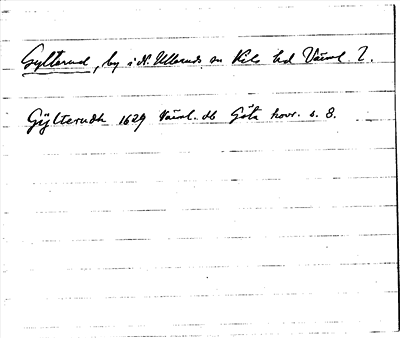 Gylterud, by i N. Ulleruds sn Kils hd Värml. l.
Gÿlterudh 1629 Värml. db Göta hovr. s. 8.